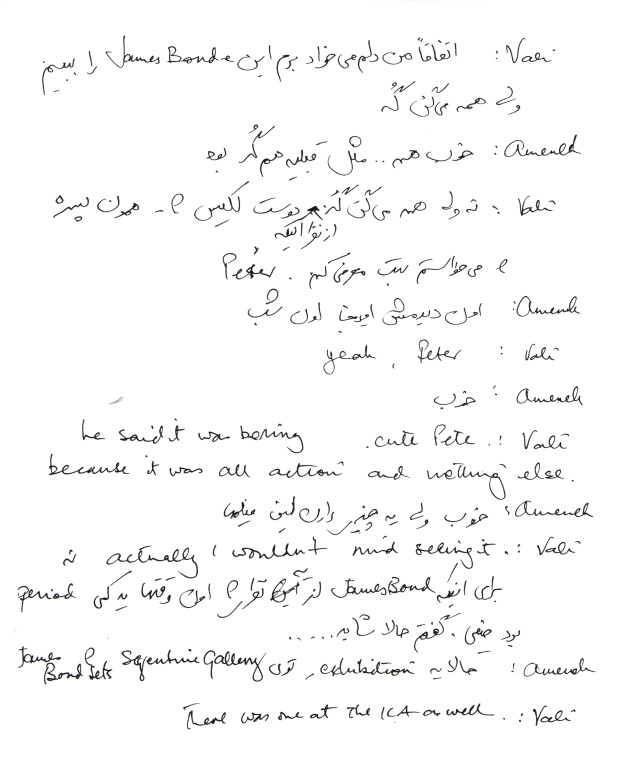 Vali : اتفاقاً من دلم می خواد برم این James Bond e را ببینم
ولی همه می‌گن گُه
Ameneh : خوب همه .. مثل قبلیه هم گُر
Vali : نه ولی همه می‌گن گُه. دوست لکیس ؟ - همون پسره
از نفر اینکه
می خواستم بهت معرفی کنم . Peter
Ameneh: اول دیدمش اونجا اون شب
Vali : yeah , Peter
Ameneh : خوب
Vali : . cute Pete. he said it was boring
because it was all action and nothing else.
Ameneh : خوب ولی یه چیز
Vali : . نه actually I wouldn't mind seeing it
برای اینکه James Bond از اول وقتها یه کمی period
بود خیلی . گفتم حالا شاید ......
Ameneh : حالا یه exhibition توی Serpentine Gallery James Bond sets
Vali : . There was one at the ICA as well